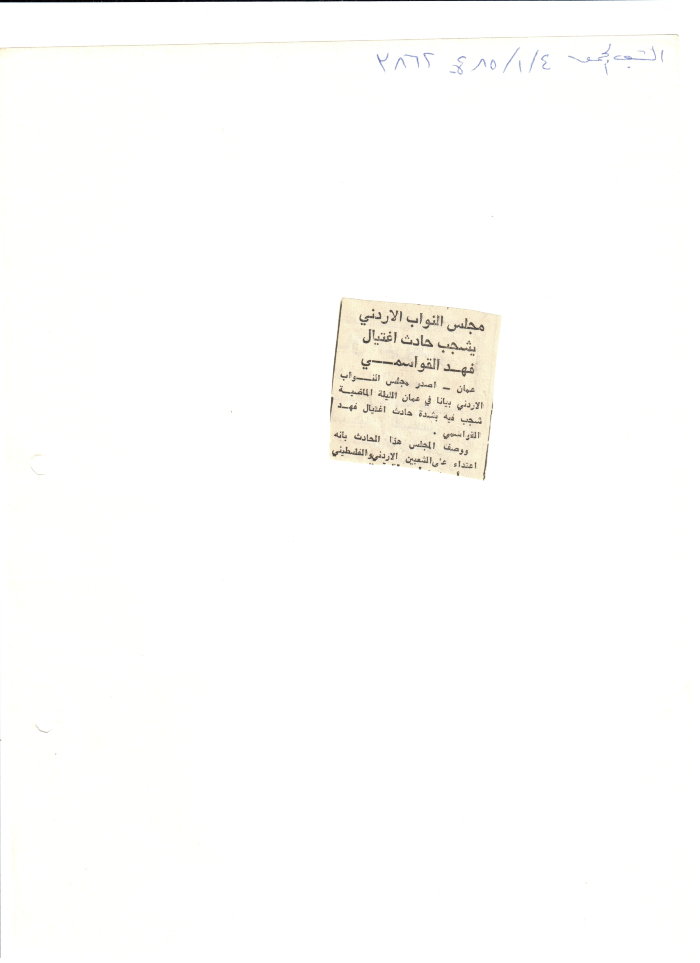 الشعب الجمعة ٨٥/١/٤ ع ٣٨٦٢
مجلس النواب الاردني
يشجب حادث اغتيال
فهـد القواسمـــي
عمان ــ اصدر مجلس النـــواب
الاردني بيانا في عمان الليلة الماضيــة
شجب فيه بشدة حادث اغتيال فهــد
القواسمي .
ووصف المجلس هذا الحادث بانه
اعتداء على الشعبين الاردني والفلسطيني